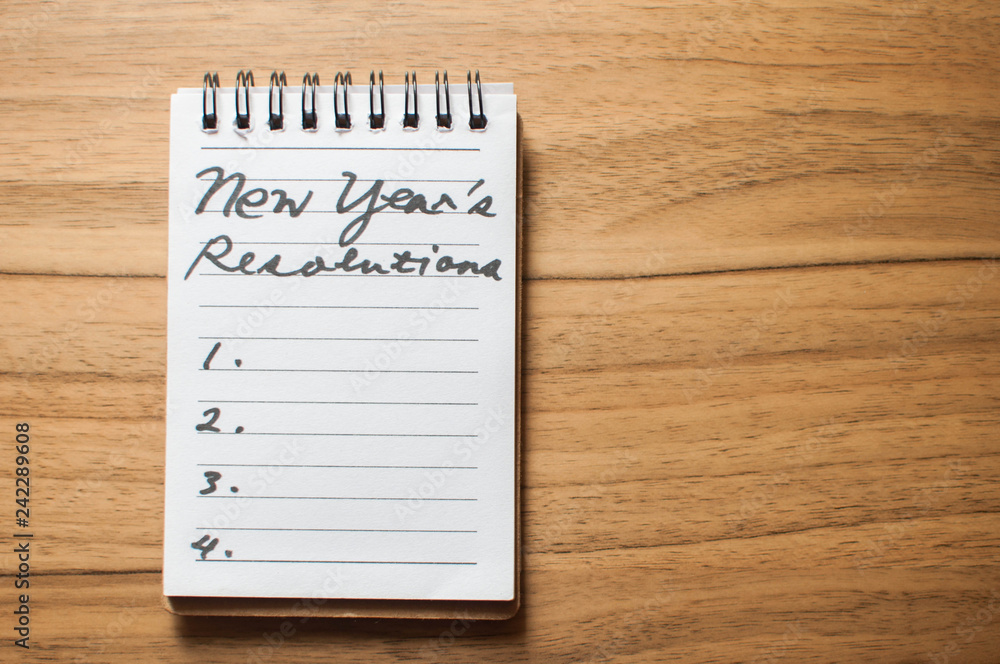 New Year's
Resolutions
1.
2.
3.
4.
Adobe Stock | 242289608